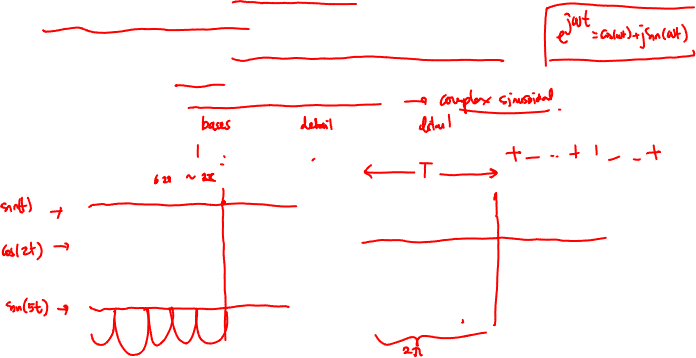 e^jωt = cos(ωt) + j sin(ωt)
→ complex sinusoidal
bases detail detail
← T → + - .. + 1 - .. +
~ 2π
sin(t) →
cos(2t) →
sin(5t) →
2π